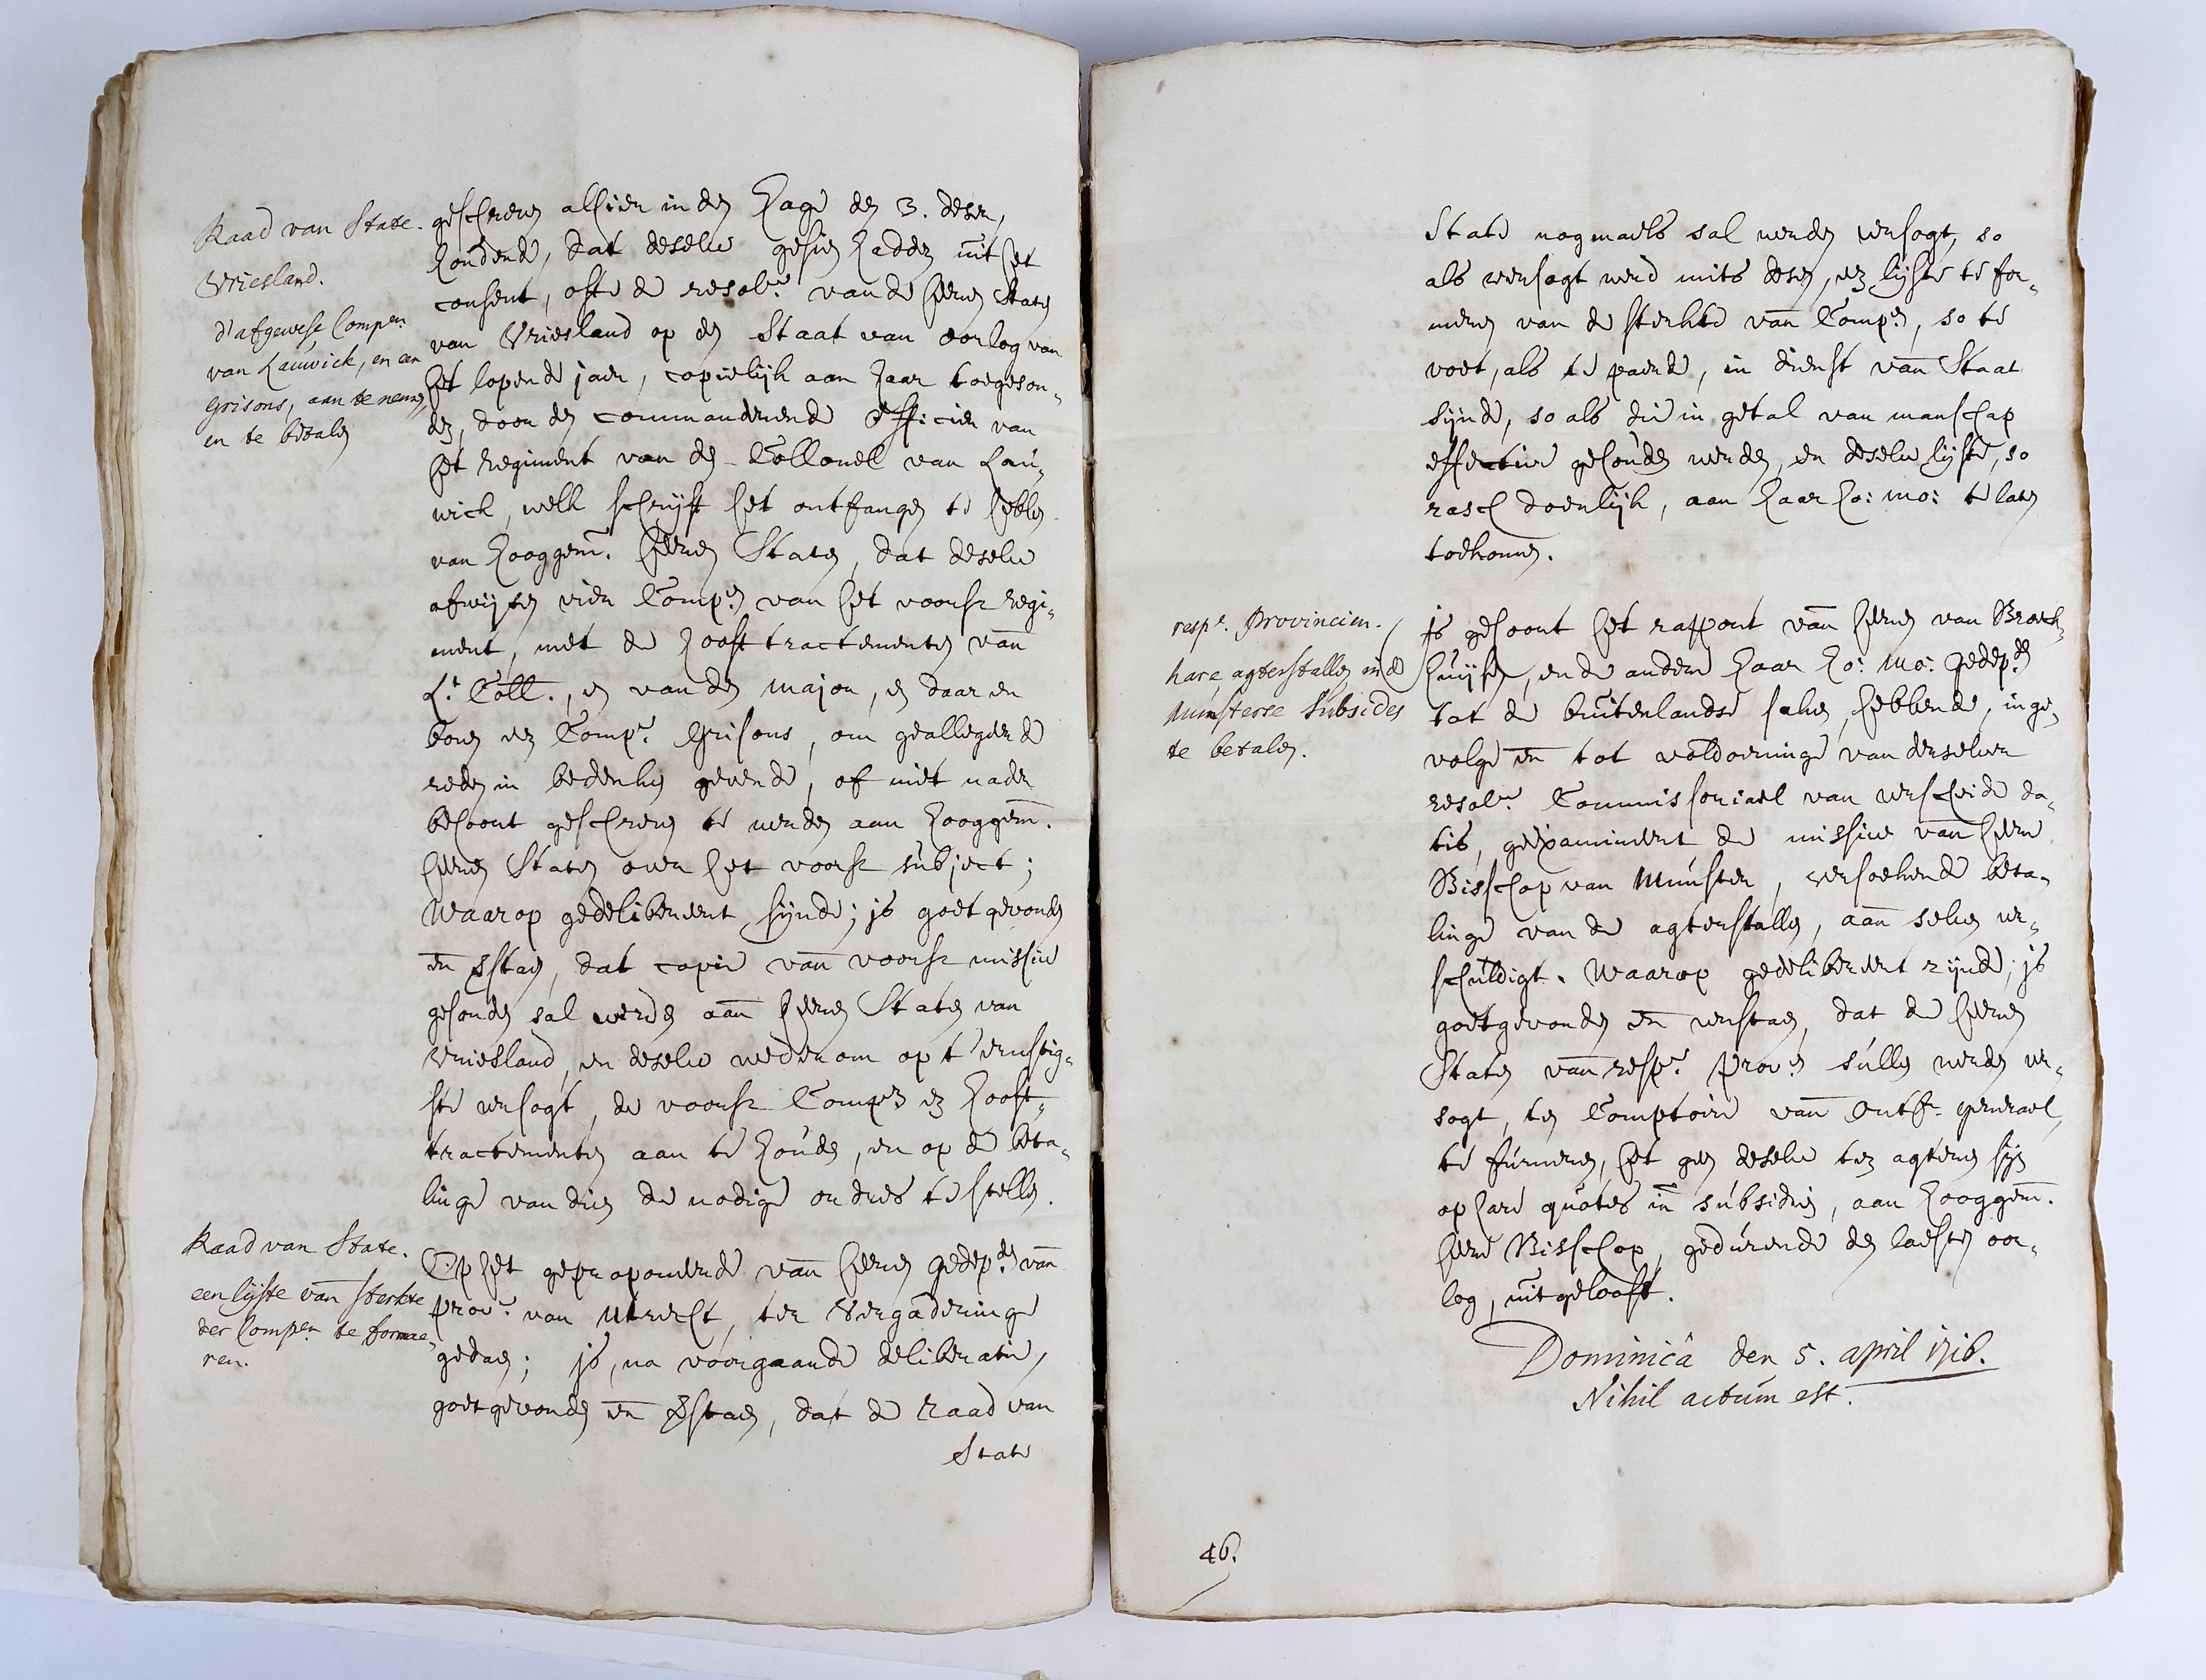 Raad van State.
Vriesland.
d'afgewese Compen.
van Lauwick, en een
Grisons, aan te nemen,
en te betalen
geschreven alhier in den Hage den 3. deser,
houdende, dat deselve gesien hadden uit het
consent, ofte de resolᵉ. van de heeren Staten
van Vriesland op den Staat van oorlog van
het lopende jaer, copielijk aan haar toegeson-
den, door den commanderende Officier van
het Regiment van den Collonel van Lau-
wick, welk schrijft het ontfangen te hebben
van hooggem. heeren Staten, dat deselve
afwijsen vier Compᵉⁿ van het voorsz regi-
ment, met de hooft tractementen van
Lᵗ. Coll., en van den major, en daar en
boven een Compᵉ. Grisons, om geallegeerde
reden in bedenken gevende, of niet nader
behoort geschreven te werden aan hooggem.
heeren Staten over het voorsz subject;
Waarop gedelibereert sijnde; is goet gevonden
en verstaen, dat copie van voorsz missive
gesonden sal werden aan heeren Staten van
Vriesland, en deselve wederom op 't ernstig-
ste versogt, de voorsz Compᵉⁿ en hooft-
tractementen aan te houden, en op de beta-
linge van dien de nodige ordres te stellen.
Raad van State.
een lijste van sterkte
der Compen te forme-
ren.
Op het geproponeerde van heeren gedepᵈᵉⁿ van
provᵉ. van Utrecht, ter Vergaderinge
gedaen; is, na voorgaande deliberatie,
goetgevonden en verstaen, dat de Raad van
State
State nogmaels sal werden versogt, so
als versogt werd mits desen, een lijste te for-
meren van de sterkte van Compⁿ, so te
voet, als te paerde, in dienst van Staat
sijnde, so als die in getal van manschap
effective gehouden werden, en deselve lijste, so
rasch doenlijk, aan haar ho: mo: te laten
toekomen.
respᵉ. Provincien.
hare agterstallen in de
Munsterse Subsidies
te betalen.
Is gehoort het rapport van heeren van Broek-
huijsen, en de andere haar ho: mo: gedepᵈᵉⁿ
tot de buitenlandse saken hebbende, inge-
volge en tot voldoeninge van derselver
resolᵉ. Commissoriael van verscheide da-
tis, geëxamineert de missive van heere
Bisschop van Munster, versoekende beta-
linge van de agterstallen, aan selven ver-
schuldigt. Waarop gedelibereert zijnde; is
goetgevonden en verstaen, dat de heeren
Staten van respᵉ. Provⁿ sullen werden ver-
sogt, ten Comptoire van Ontf. generael,
te furneren, het geen deselve ten agteren sijn
op hare quotes in subsidien, aan hooggem.
heere Bisschop, gedurende den laesten oor-
log, uitgelooft.
Dominicâ den 5. april 1716.
Nihil actum est.
46.